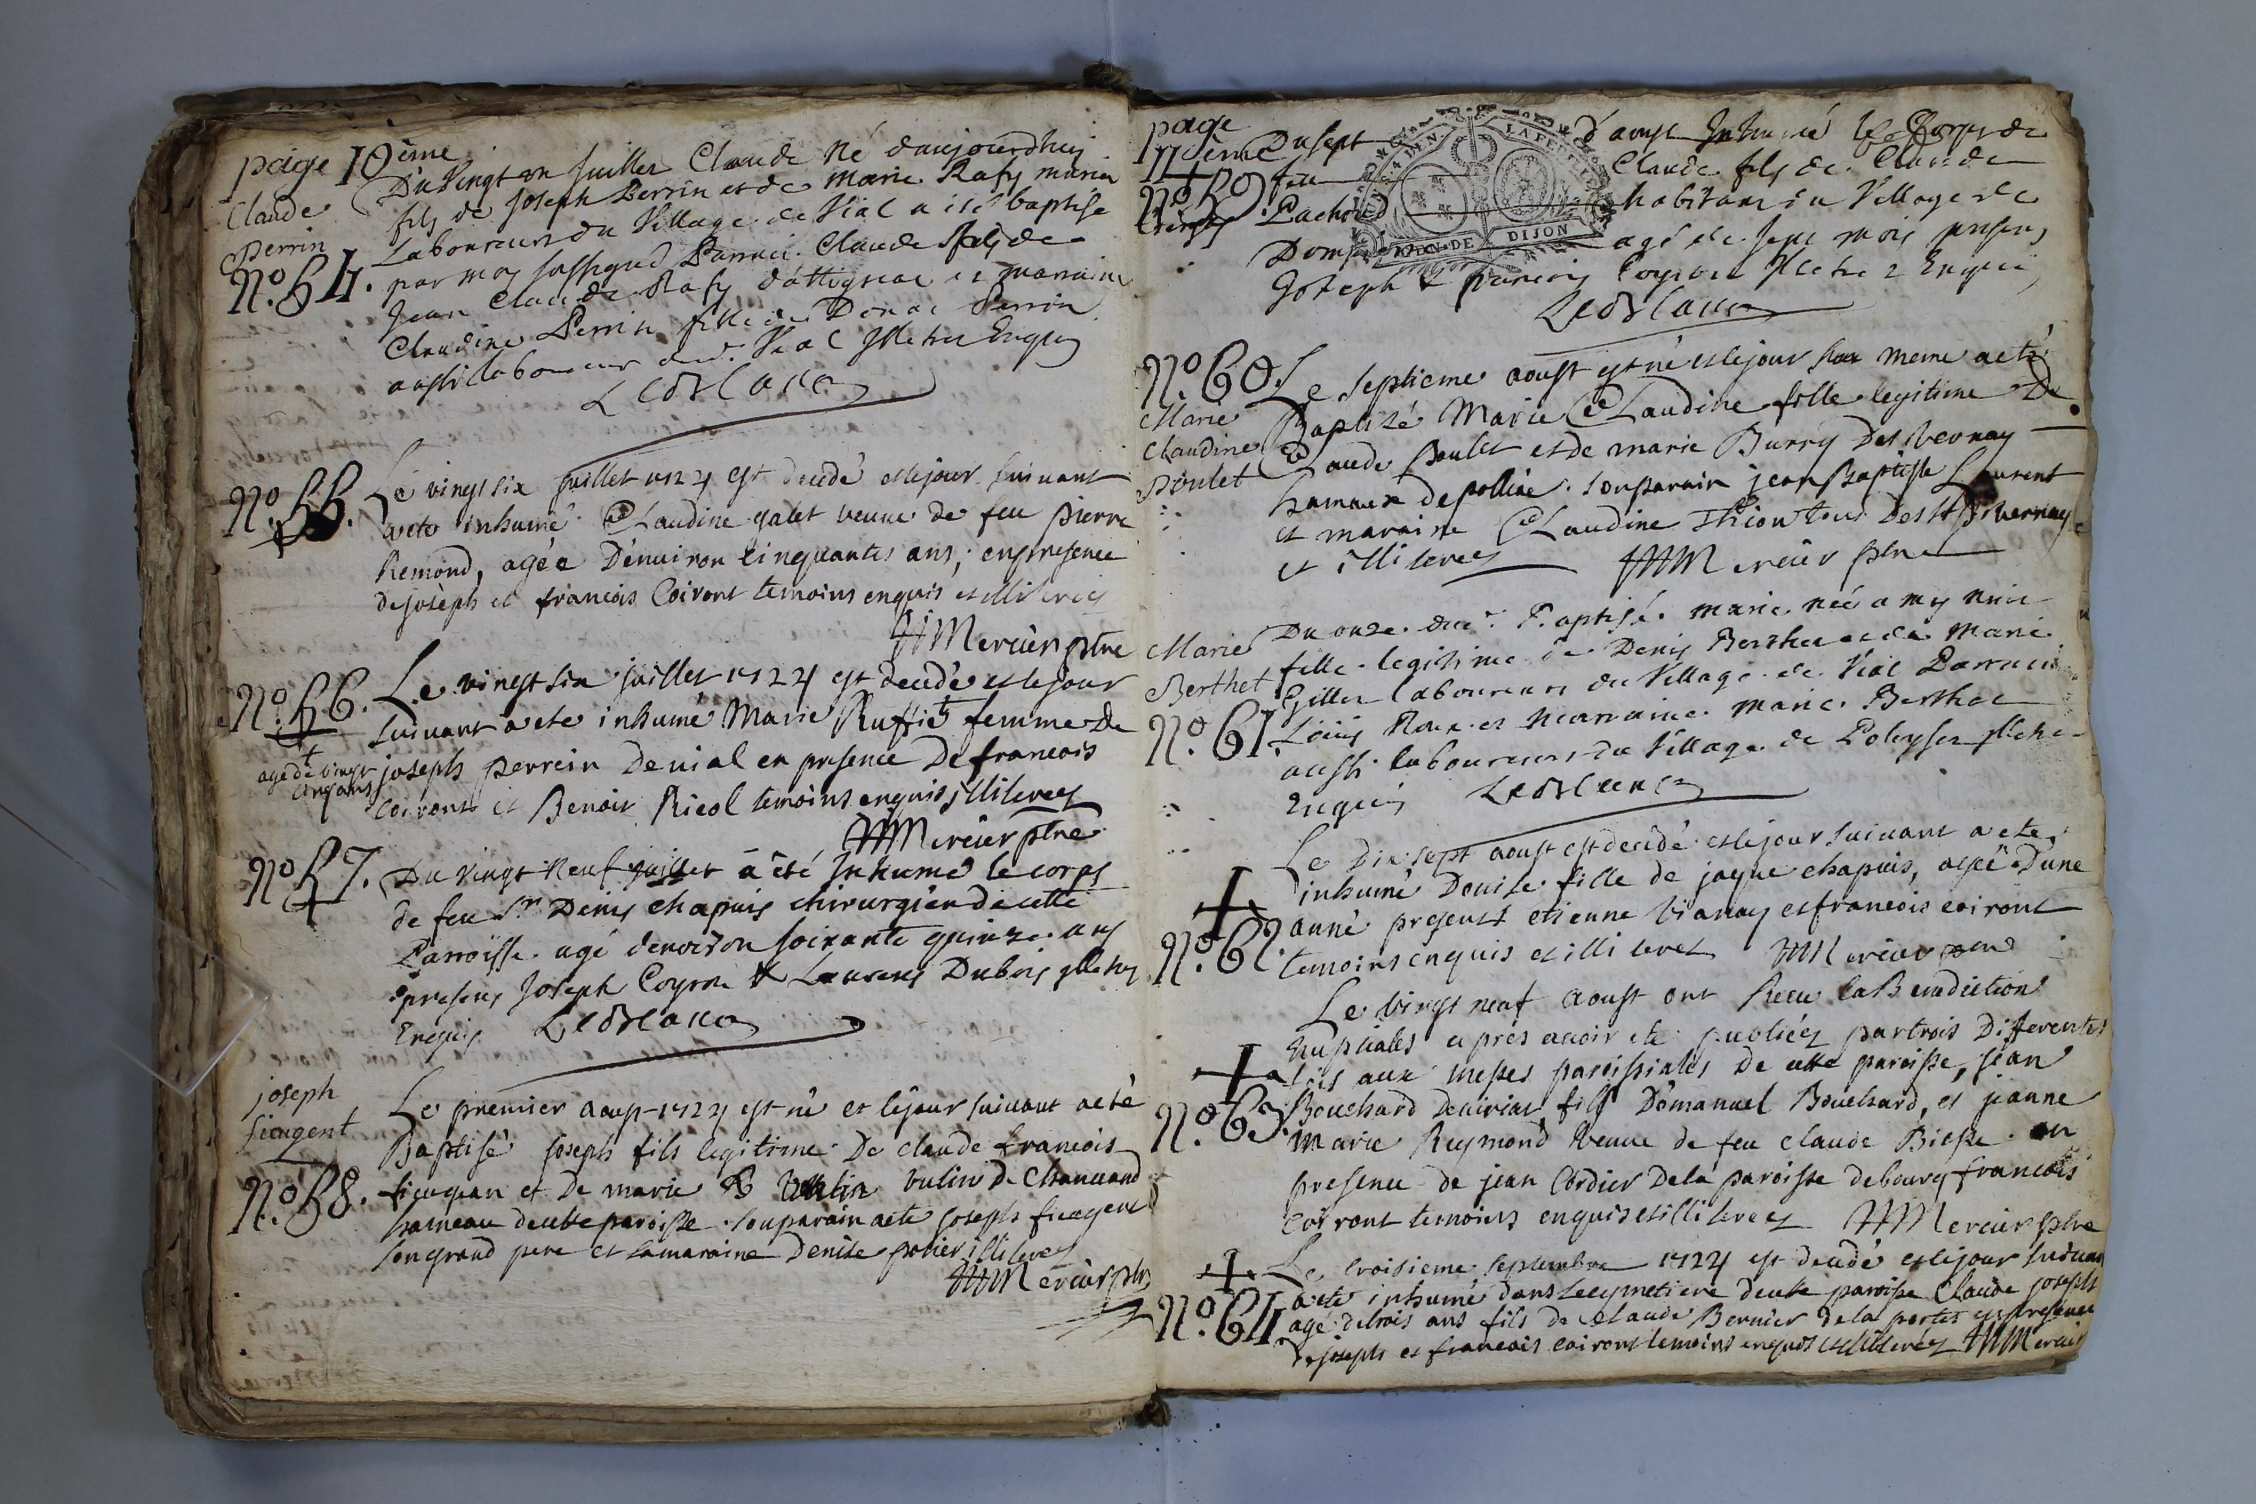 page 10ème
Du Vingt un Juillet Claude Né daujourdhuy
Claude
fils de Joseph Perrin et de Marie Rafy mariés
Perrin
Laboureurs du Village de Vial a été baptisé
N°. 54.
par moy soussigné Parrein Claude Rafy de
Jean Claude Rafy d'attignac et marraine
Claudine Perrin fille de Donat Perrin
aussi laboureur dud. Vial Jlletrés Enquis
LeoBlanc
N°. 55.
Le vingt six juillet 1724 est decedé et lejour suivant
a été inhumé Claudine galet veuve de feu pierre
Remond, agée D'environ cinquantes ans, en presence
de joseph et francois Coiront temoins enquis et illiterés
Mercier ptre
N°. 56.
Le vingt six juillet 1724 est decedé et lejour
suivant a ete inhumé Marie Ruffié femme de
agé de vingt
cinq ans
joseph perrein de vial en presence De francois
coiront et Benoit Ricol temoins enquis, illiterez
Mercier ptre
N°. 57.
Du Vingt Neuf juillet a été Inhumé le corps
de feu Sr Denis chapuis chirurgien de cette
Parroisse agé denviron soixante quinze ans
presens Joseph Coyron & Laurens Dubois Jlletrés
Enquis LeoBlanc
joseph
ficugent
N°. 58.
Le premier aoust 1724 est né et lejour suivant a eté
Baptisé joseph fils legitime De claude francois
ficugean et De marie vulin De Chanuand
hameau de cette paroisse son parain a eté joseph ficugent
son grand pere et la maraine Denise potier illiterez
Mercier ptre
page
11ème
N°. 59.
Du sept d'aoust Inhumé le Corps de
feu Claude fils de Claude
Pachoud habitant du Village de
agé de sept mois presens
Joseph & francois Coyron Jlletrés Enquis
LeoBlanc
N°. 60.
Marie
Claudine
poulet
Le septieme aoust est né et lejour meme a eté
Baptizé Marie Claudine fille legitime De
Claude poulet et de marie Burry Des Vernay
hameau de polliac. son parain jean Baptiste Laurent
et maraine Claudine Thion tous Des Vernay
et illiterez Mercier ptre
Marie
Berthet
N°. 61.
Du onze dud. Baptisé marie née a my nuit
fille legitime de Denis Berthet et de Marie
Gillet laboureurs du Village de Vial Parrein
Louis Roux et Marraine Marie Berthet
aussi laboureurs du Village de Poleyser Jlletrés
Enquis LeoBlanc
N°. 62.
Le Dix sept aoust est decedé et lejour suivant a ete
inhumé Denise fille de jaque chapuis, agée D'une
anné presents etienne Vianay et francois coiront
temoins enquis et illiterez Mercier ptre
N°. 63.
Le vingt neuf aoust ont Recu la Benediction
Nuptiales aprés avoir eté publiéez par trois Differentes
fois aux messes paroissiales De cette paroisse, jean
Bouchard De viriat fils D'emanuel Bouchard, et jeanne
Marie Reymond Veuve de feu claude Biesse en
presence de jean Cordier De la paroisse de bourg francois
coiront temoins enquis et illiterez Mercier ptre
N°. 64.
Le troisieme septembre 1724 est decedé et lejour suivant
a eté inhumé dans le cymetiere de cette paroisse Claude joseph
agé de trois ans fils de Claude Bernier de la portes en presence
De joseph et francois coiront temoins enquis et illiteréz Mercier